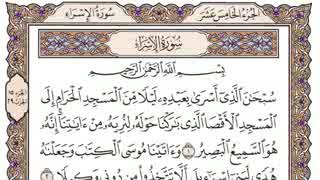 الجزء الخامس عشر
سورة الإسراء
سورة الإسراء
بسم الله الرحمن الرحيم
سُبْحَٰنَ ٱلَّذِىٓ أَسْرَىٰ بِعَبْدِهِۦ لَيْلًا مِّنَ ٱلْمَسْجِدِ ٱلْحَرَامِ إِلَى
ٱلْمَسْجِدِ ٱلْأَقْصَا ٱلَّذِى بَٰرَكْنَا حَوْلَهُۥ لِنُرِيَهُۥ مِنْ ءَايَٰتِنَآ إِنَّهُۥ
هُوَ ٱلسَّمِيعُ ٱلْبَصِيرُ ١ وَءَاتَيْنَا مُوسَى ٱلْكِتَٰبَ وَجَعَلْنَٰهُ
هُدًى لِّبَنِىٓ إِسْرَٰٓءِيلَ أَلَّا تَتَّخِذُوا۟ مِن دُونِى وَكِيلًا ٢
الجزء ١٥
الحزب ٢٩